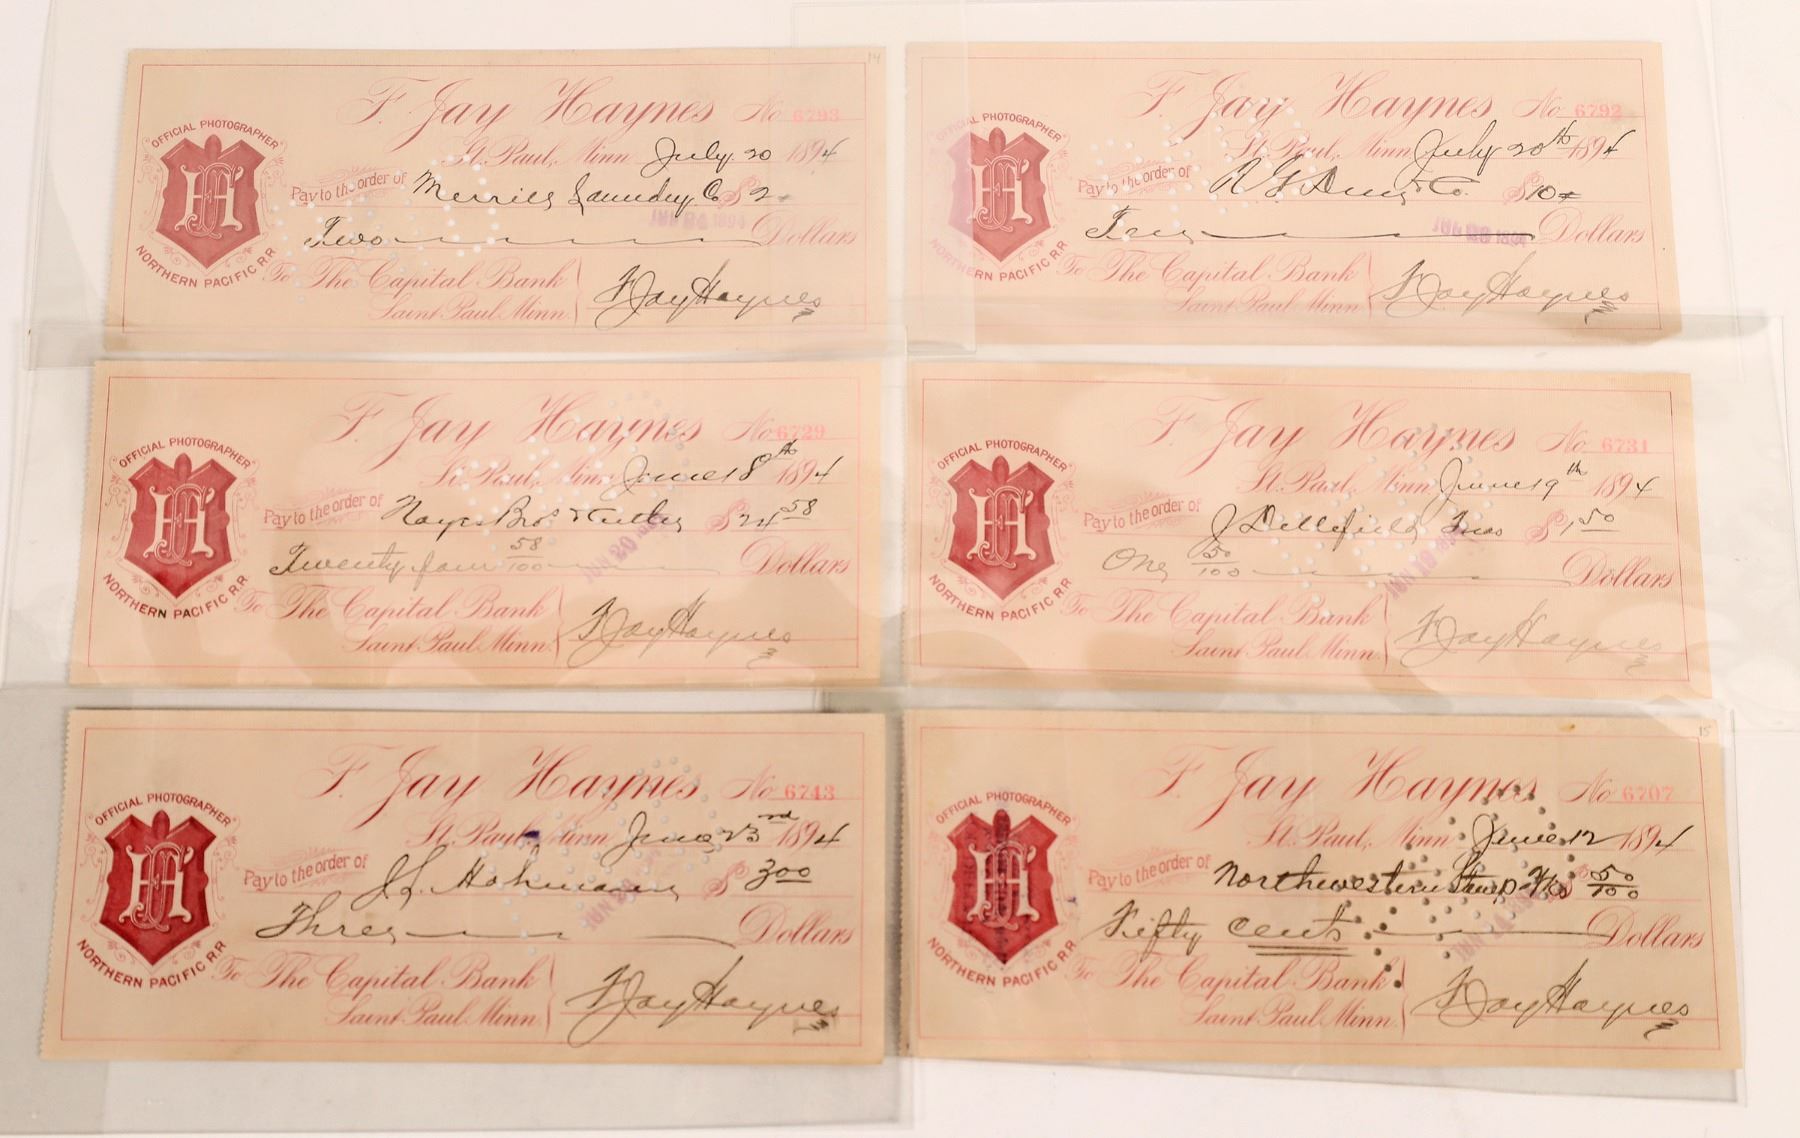 F. Jay Haynes No 6793
OFFICIAL PHOTOGRAPHER
St. Paul, Minn July 20 1894
Pay to the order of Merrill Laundry Co $2
Two Dollars
NORTHERN PACIFIC R.R.
To The Capital Bank
Saint Paul Minn.
F Jay Haynes
14
F. Jay Haynes No 6792
OFFICIAL PHOTOGRAPHER
St. Paul, Minn July 20th 1894
Pay to the order of Co. $10
Ten Dollars
NORTHERN PACIFIC R.R.
To The Capital Bank
Saint Paul Minn.
F Jay Haynes
F. Jay Haynes No 6729
OFFICIAL PHOTOGRAPHER
St. Paul, Minn June 18th 1894
Pay to the order of Noyes Bros & Cutler $24 58
Twenty four 58/100 Dollars
NORTHERN PACIFIC R.R.
To The Capital Bank
Saint Paul Minn.
F Jay Haynes
F. Jay Haynes No 6731
OFFICIAL PHOTOGRAPHER
St. Paul, Minn June 19th 1894
Pay to the order of J $1 50
One 50/100 Dollars
NORTHERN PACIFIC R.R.
To The Capital Bank
Saint Paul Minn.
F Jay Haynes
F. Jay Haynes No 6743
OFFICIAL PHOTOGRAPHER
St. Paul, Minn June 23rd 1894
Pay to the order of J. L. Hohmann $3 00
Three Dollars
NORTHERN PACIFIC R.R.
To The Capital Bank
Saint Paul Minn.
F Jay Haynes
15
F. Jay Haynes No 6707
OFFICIAL PHOTOGRAPHER
St. Paul, Minn June 12 1894
Pay to the order of Northwestern Stamp Wks $ 50/100
Fifty cents Dollars
NORTHERN PACIFIC R.R.
To The Capital Bank
Saint Paul Minn.
F Jay Haynes